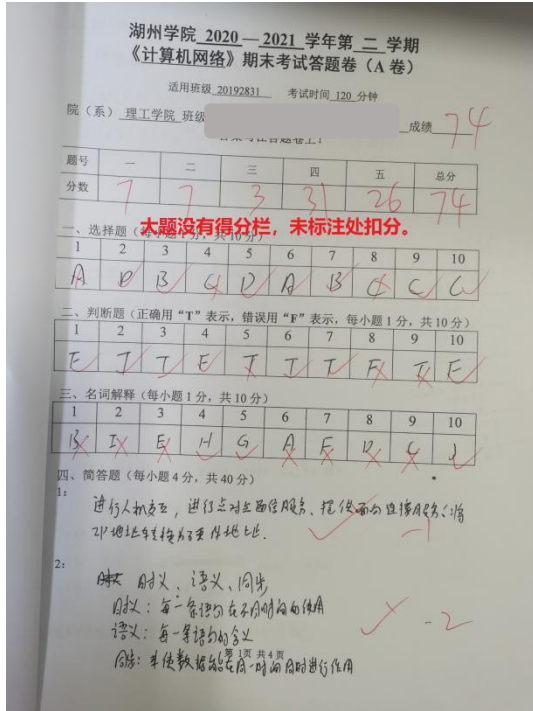 湖州学院 2020 — 2021 学年第 二 学期
《计算机网络》期末考试答题卷（A 卷）
适用班级 20192831 考试时间 120 分钟
院（系） 理工学院 班级 成绩 74
题号 一 二 三 四 五 总分
分数 7 7 3 31 26 74
大题没有得分栏，未标注处扣分。
一、选择题（每小题 1 分，共 10 分）
1 2 3 4 5 6 7 8 9 10
A D B C D A B C C C
二、判断题（正确用“T”表示，错误用“F”表示，每小题 1 分，共 10 分）
1 2 3 4 5 6 7 8 9 10
F T T F T T T F T F
三、名词解释（每小题 1 分，共 10 分）
1 2 3 4 5 6 7 8 9 10
B I E H G A F D C J
四、简答题（每小题 4 分，共 40 分）
1：
进行人机交互，进行点对点通信服务、提供面向连接服务、将
IP地址转换为硬件地址. -1
2：
时义、语义、同步
时义：每一条语句在不同时间的作用
语义：每一条语句的含义 -2
同步：来使数据能在同一时间同时进行作用
第 1页 共 4 页